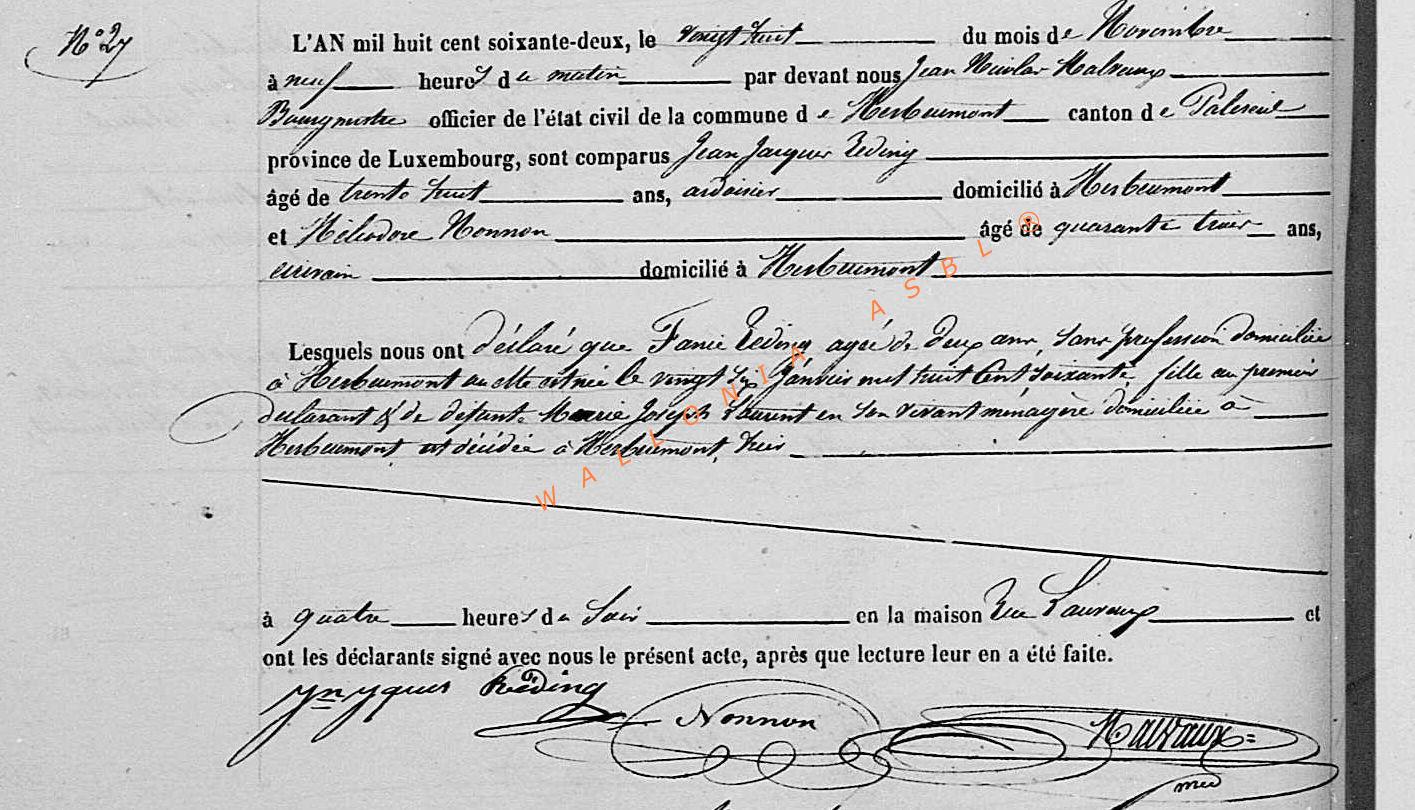 N° 27
L'AN mil huit cent soixante-deux, le vingt huit du mois de Novembre
à neuf heures du matin par devant nous Jean Nicolas Malvaux
Bourgmestre officier de l'état civil de la commune de Herbeumont canton de Paliseul
province de Luxembourg, sont comparus Jean Jacques Reding
âgé de trente huit ans, ardoisier domicilié à Herbeumont
et Héliodore Nonnon âgé de quarante trois ans,
écrivain domicilié à Herbeumont
Lesquels nous ont déclaré que Fanie Reding agée de deux ans, sans profession domiciliée
à Herbeumont où elle est née le vingt six Janvier mil huit Cent soixante, fille du premier
déclarant & de défunte Marie Joseph Laurent en son vivant ménagère domiciliée à
Herbeumont est décédée à Herbeumont, hier
à quatre heures du Soir en la maison Rue Lauvaux et
ont les déclarants signé avec nous le présent acte, après que lecture leur en a été faite.
Jn Jques Réding
Nonnon
Malvaux
WALLONIA ASBL ®